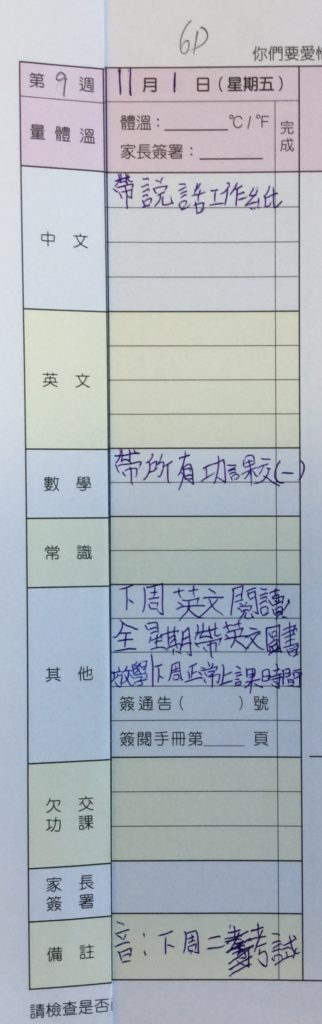 6D
你們要愛惜
第9週 11月1日(星期五)
量體溫 體溫：______°C/°F 完成
家長簽署：______
中文 帶說話工作紙
英文
數學 帶所有功課交(一)
常識
其他 下周英文閱讀
全星期帶英文圖書
放學下周正常上課時間
簽通告( )號
簽閱手冊第____頁
欠交功課
家長簽署
備註 音：下周二考試
請檢查是否